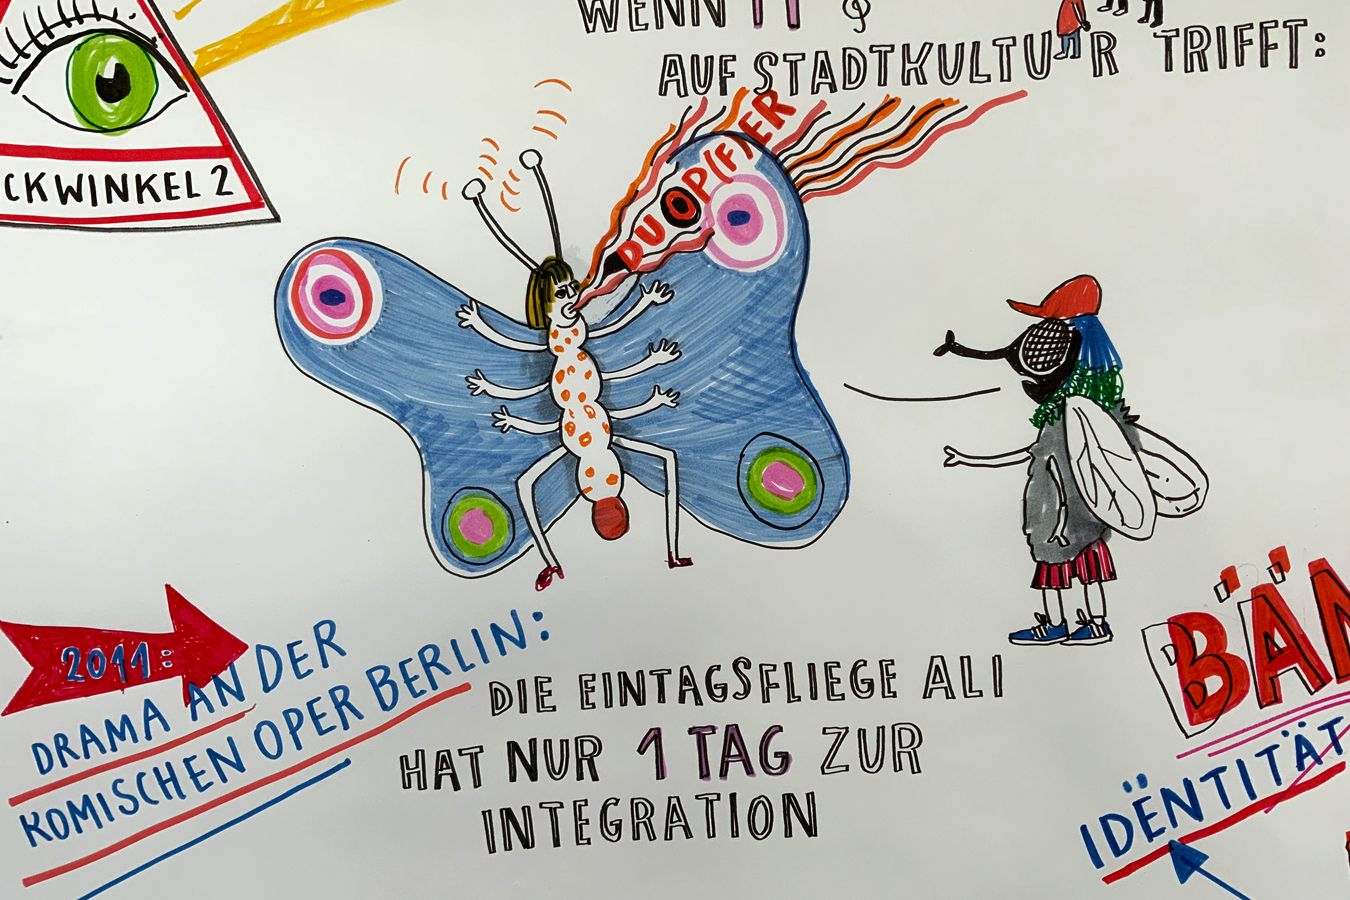 WENN
AUF STADTKULTUR TRIFFT:
CKWINKEL 2
DU OP(F)ER
2011:
DRAMA AN DER
KOMISCHEN OPER BERLIN:
DIE EINTAGSFLIEGE ALI
HAT NUR 1 TAG ZUR
INTEGRATION
BÄN
IDËNTITÄT